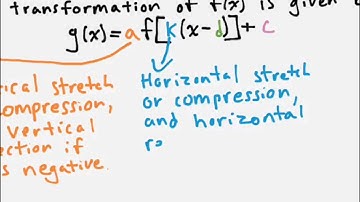 transformation of f(x) is given
g(x)=af[k(x-d)]+c
rtical stretch
ompression,
vertical
ection if
s negative.
Horizontal stretch
or compression,
and horizontal
r